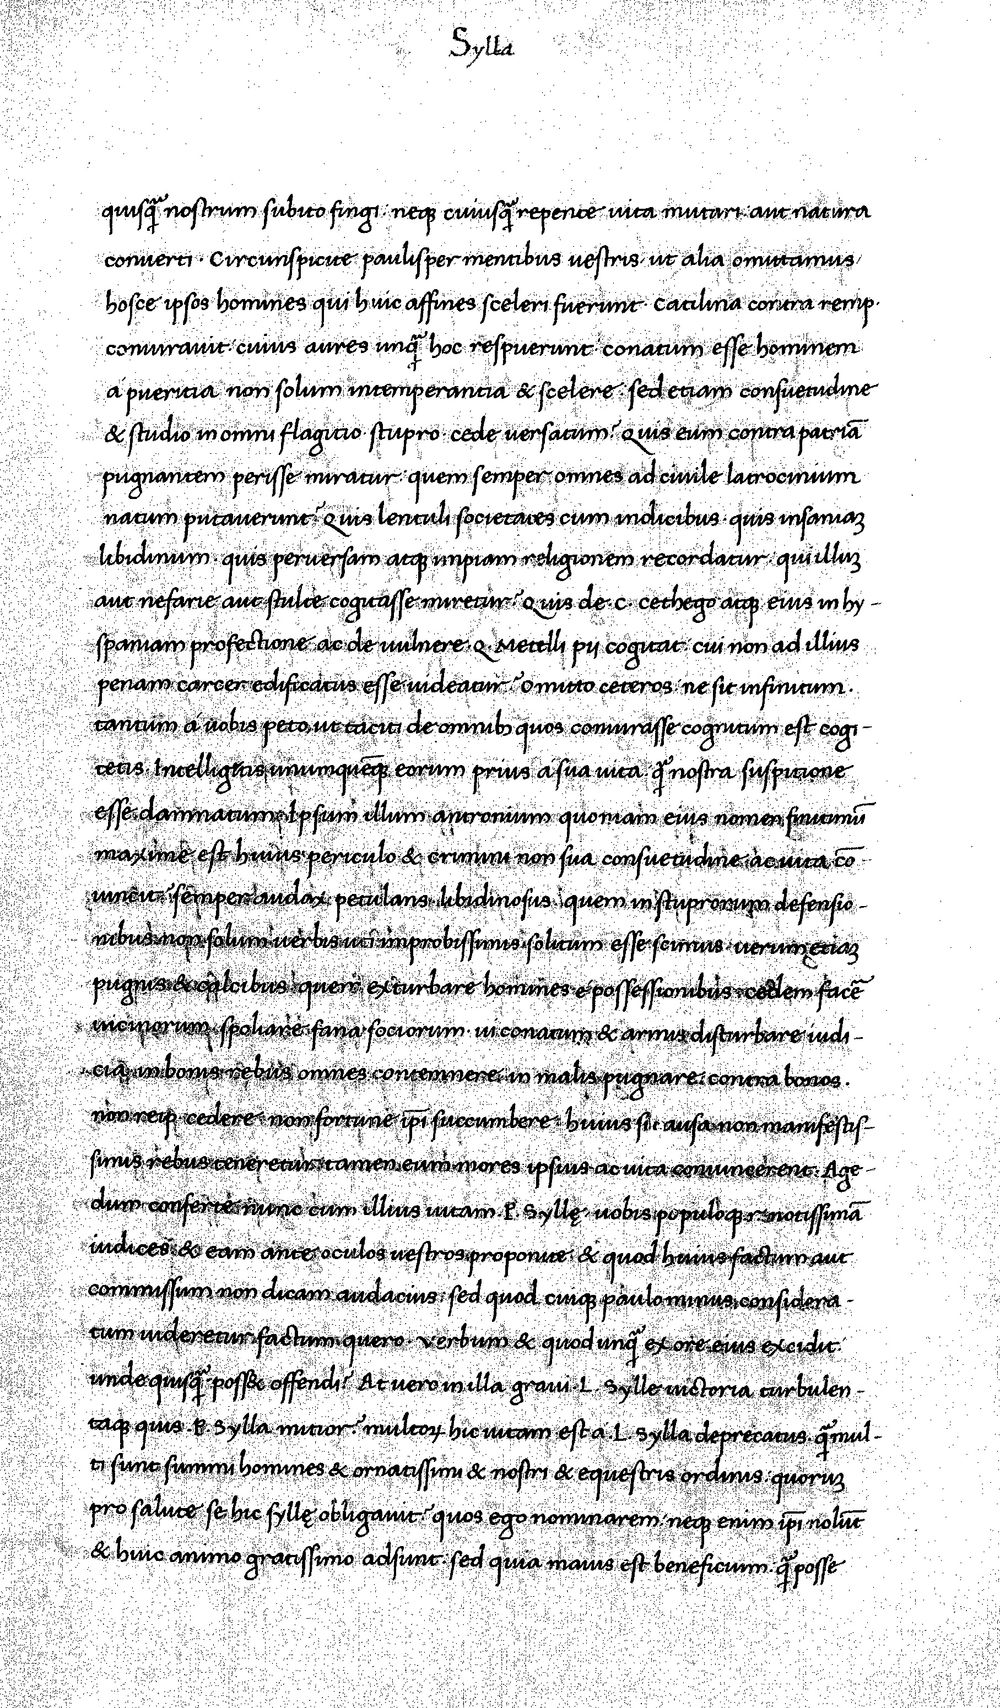 Sylla
quisq̃ nostrum subito fingi· neq; cuiusq̃ repente uita mutari· aut natura
conuerti· Circunspicite paulisper mentibus uestris· ut alia omittamus/
hosce ipsos homines qui huic affines sceleri fuerunt· Catilina contra remp·
coniurauit· cuius aures unq̃ hoc respuerunt· conatum esse hominem
a pueritia non solum intemperantia & scelere· sed etiam consuetudine
& studio in omni flagitio stupro· cede uersatum? Quis eum contra patriā
pugnantem perisse miratur· quem semper omnes ad ciuile latrocinium
natum putauerunt? Quis lentuli societates cum indicibus· quis insaniaꝫ
libidinum· quis peruersam atq; impiam religionem recordatur· qui illuꝫ
aut nefarie aut stulte cogitasse miretur? Quis de· C· cethego atq; eius in hy-
spaniam profectione· ac de uulnere· Q· Metelli pij cogitat· cui non ad illius
penam carcer edificatus esse uideatur? Omitto ceteros· ne sit infinitum·
tantum a uobis peto ut taciti de omnibꝫ quos coniurasse cognitum est cogi-
tetis· Intelligetis unumquēq; eorum prius a sua uita· q̃ nostra suspitione
esse damnatum· Ipsum illum antronium quoniam eius nomen finitimū
maxime est huius periculo & crimini non sua consuetudine ac uita cō
uincit? semper audax petulans· libidinosus· quem in stuprorum defensio-
nibus non solum uerbis uti improbissimis solitum esse scimus· uerum etiaꝫ
pugnis & calcibus· quem exturbare homines e possessionibus· cedem facē
uicinorum· spoliare fana sociorum· ui conatum & armis disturbare iudi-
cia· in bonis rebus omnes contemnere· in malis pugnare· contra bonos·
non reip· cedere· non fortune ip̄i succumbere· huius si causa non manifestis-
simis rebus teneretur· tamen eum mores ipsius ac uita conuincerent· Age-
dum conferte nunc cum illius uitam· P. Syllę· uobis populoq; r· notissimā
iudices· & eam ante oculos uestros proponite· & quod huius factum aut
commissum non dicam audacius· sed quod cuiq; paulo minus considera-
tum uideretur factum quero· Verbum & quod unq̃ ex ore eius excidit·
unde quisq̃ posset offendi? At uero in illa graui· L. Sylle uictoria turbulen-
taq; quis· P. Sylla mitior? multoꝝ hic uitam est a· L. Sylla deprecatus· q̃ mul-
ti sunt summi homines & ornatissimi & nostri & equestris ordinis· quoruꝫ
pro salute se hic syllę obligauit? quos ego nominarem· neq; enim ip̄i nolūt
& huic animo gratissimo adsunt· sed quia maius est beneficium· q̃ posse